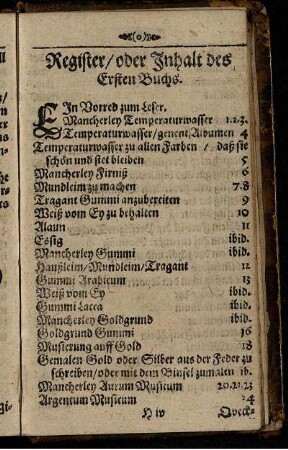 (o)
Register/ oder Inhalt des
Ersten Buchs.
EIn Vorred zum Leser.
Mancherley Temperaturwasser 1.2.3.
Temperaturwasser/ genent Albumen 4
Temperaturwasser zu allen Farben / daß sie
schön und stet bleiben 5
Mancherley Firniß 6
Mundleim zu machen 7.8
Tragant Gummi anzubereiten 9
Weiß vom Ey zu behalten 10
Alaun 11
Essig ibid.
Mancherley Gummi ibid.
Haußleim/ Mundleim/ Tragant 12
Gummi Arabicum 13
Weiß vom Ey ibid.
Gummi Lacca ibid.
Mancherley Goldgrund ibid.
Goldgrund Gummi 16
Musierung auff Gold 18
Gemalen Gold oder Silber aus der Feder zu
schreiben/ oder mit dem Binsel zumalen ib.
Mancherley Aurum Musicum 20.21.23
Argentum Musicum 24
H iv Qveck-